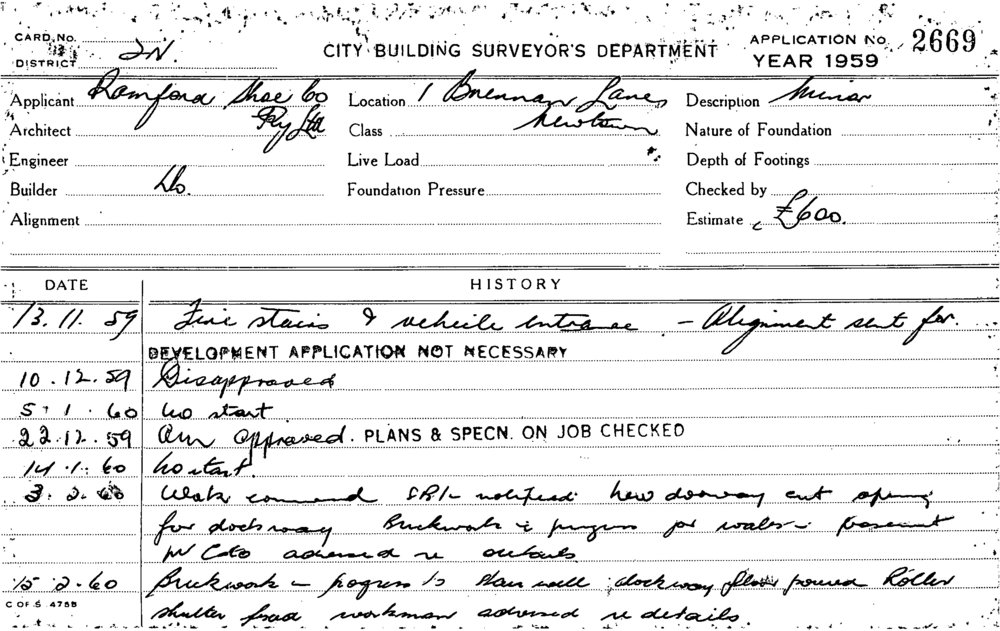 CARD No.
DISTRICT 2N.
CITY BUILDING SURVEYOR'S DEPARTMENT
APPLICATION No. 2669
YEAR 1959
Applicant Ramford Shoe Co
Pty Ltd
Location 1 Brennan Lane,
Newtown
Description Minor
Architect
Class
Nature of Foundation
Engineer
Live Load
Depth of Footings
Builder Do.
Foundation Pressure
Checked by
Alignment
Estimate £600.
DATE HISTORY
13.11.59 Fire stairs & vehicle entrance - Alignment sent for.
DEVELOPMENT APPLICATION NOT NECESSARY
10.12.59 Disapproved
5.1.60 No start
22.12.59 approved. PLANS & SPECN. ON JOB CHECKED
14.1.60 No start.
3.2.60 Work notified new doorway cut opening
for dockway Brickwork in progress for walls
advised re details
15.2.60 Brickwork in progress to stair well dockway floor poured Roller
shutter fixed workman advised re details.
C OF S 475B